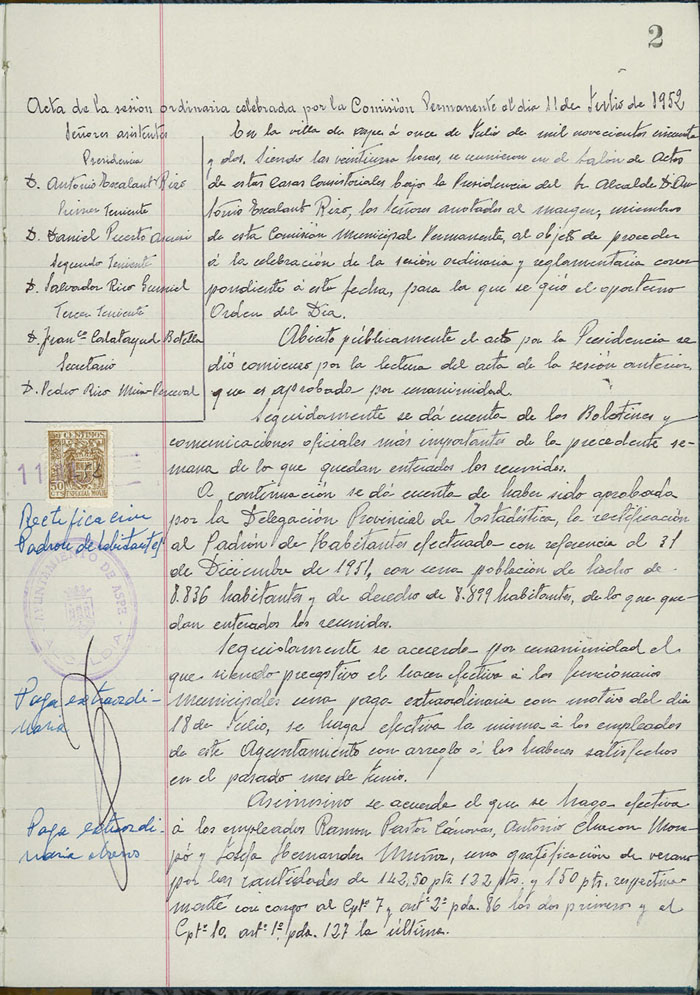 2
Acta de la sesión ordinaria celebrada por la Comisión Permanente el dia 11 de Julio de 1952
Señores asistentes
Presidencia
D. Antonio Escalant Rizo
Primer Teniente
D. Daniel Puerto
Segundo Teniente
D. Salvador Rico Gumiel
Tercer Teniente
D. Franco Calatayud Botella
Secretario
D. Pedro Rico Mira-Perceval
En la villa de Aspe á once de Julio de mil novecientos cincuenta
y dos. Siendo las veintiuna horas, se reunieron en el Salón de Actos
de estas Casas Consistoriales bajo la Presidencia del Sr. Alcalde D. An-
tonio Escalant Rizo, los Señores anotados al margen, miembros
de esta Comisión Municipal Permanente, al objeto de proceder
á la celebración de la sesión ordinaria y reglamentaria corres-
pondiente á este fecha, para la que se giró el oportuno
Orden del Dia.
Abierto públicamente el acto por la Presidencia se
dió comienzo por la lectura del acta de la sesión anterior,
que es aprobada por unanimidad.
Seguidamente se dá cuenta de los Boletines y
comunicaciones oficiales más importantes de la precedente se-
mana de lo que quedan enterados los reunidos.
A continuación se dá cuenta de haber sido aprobada
por la Delegación Provincial de Estadística, la rectificación
al Padrón de Habitantes efectuada con referencia al 31
de Diciembre de 1951, con una población de hecho de
8.836 habitantes y de derecho de 8.899 habitantes, de lo que que-
dan enterados los reunidos.
Seguidamente se acuerda por unanimidad el
que siendo preceptivo el hacer efectivo á los funcionarios
municipales una paga extraordinaria con motivo del dia
18 de Julio, se haga efectiva la misma á los empleados
de este Ayuntamiento con arreglo á los haberes satisfechos
en el pasado mes de Junio.
Asimismo se acuerda el que se haga efectiva
á los empleados Ramon Pastor Cánovas, Antonio Chacon Mom-
pó y Josefa Hernandez Muñoz, una gratificación de verano
por las cantidades de 142,50 pts 122 pts. y 150 pts. respectiva-
mente con cargo al Cptº 7 y artº 2º pda. 86 los dos primeros y el
Cptº 10. artº 1º pda. 127 la última.
50 CENTIMOS
ESPECIAL MOVIL
Rectificacion
Padron de habitantes
AYUNTAMIENTO DE ASPE
ALCALDIA
Paga extraordi-
naria
Paga extraordi-
naria